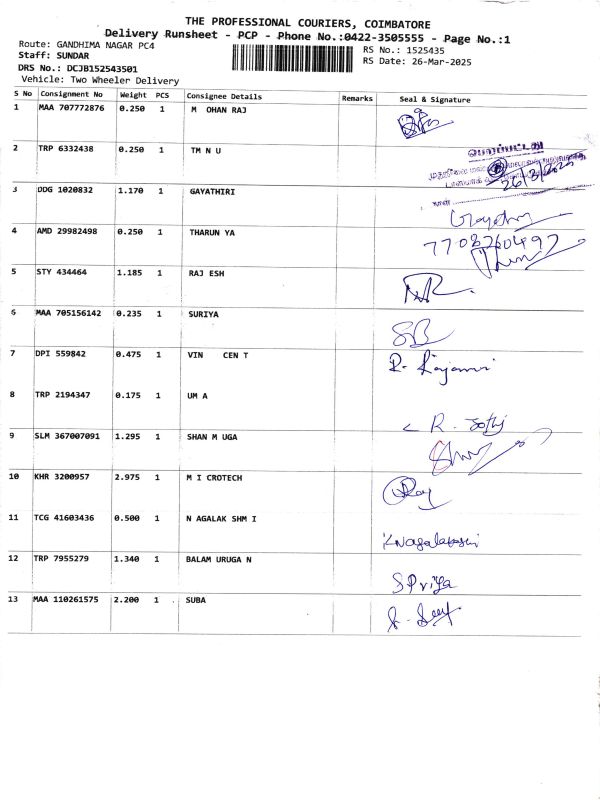 THE PROFESSIONAL COURIERS, COIMBATORE
Delivery Runsheet - PCP - Phone No.:0422-3505555 - Page No.:1
Route: GANDHIMA NAGAR PC4
RS No.: 1525435
Staff: SUNDAR
RS Date: 26-Mar-2025
DRS No.: DCJB152543501
Vehicle: Two Wheeler Delivery
S No Consignment No Weight PCS Consignee Details Remarks Seal & Signature
1 MAA 707772876 0.250 1 M OHAN RAJ
2 TRP 6332438 0.250 1 TM N U
பெறப்பட்டது
26/3/2025
3 DDG 1020832 1.170 1 GAYATHIRI
Gayathiri
4 AMD 29982498 0.250 1 THARUN YA
7708260497
5 STY 434464 1.185 1 RAJ ESH
6 MAA 705156142 0.235 1 SURIYA
7 DPI 559842 0.475 1 VIN CEN T
R-
8 TRP 2194347 0.175 1 UM A
R.
9 SLM 367007091 1.295 1 SHAN M UGA
10 KHR 3200957 2.975 1 M I CROTECH
11 TCG 41603436 0.500 1 N AGALAK SHM I
12 TRP 7955279 1.340 1 BALAM URUGA N
S Priya
13 MAA 110261575 2.200 1 SUBA